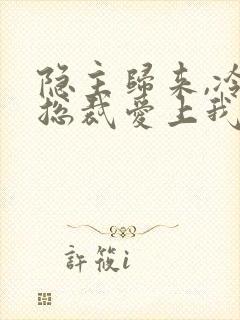 隐主歸来,冷
總裁愛上我
許筱i